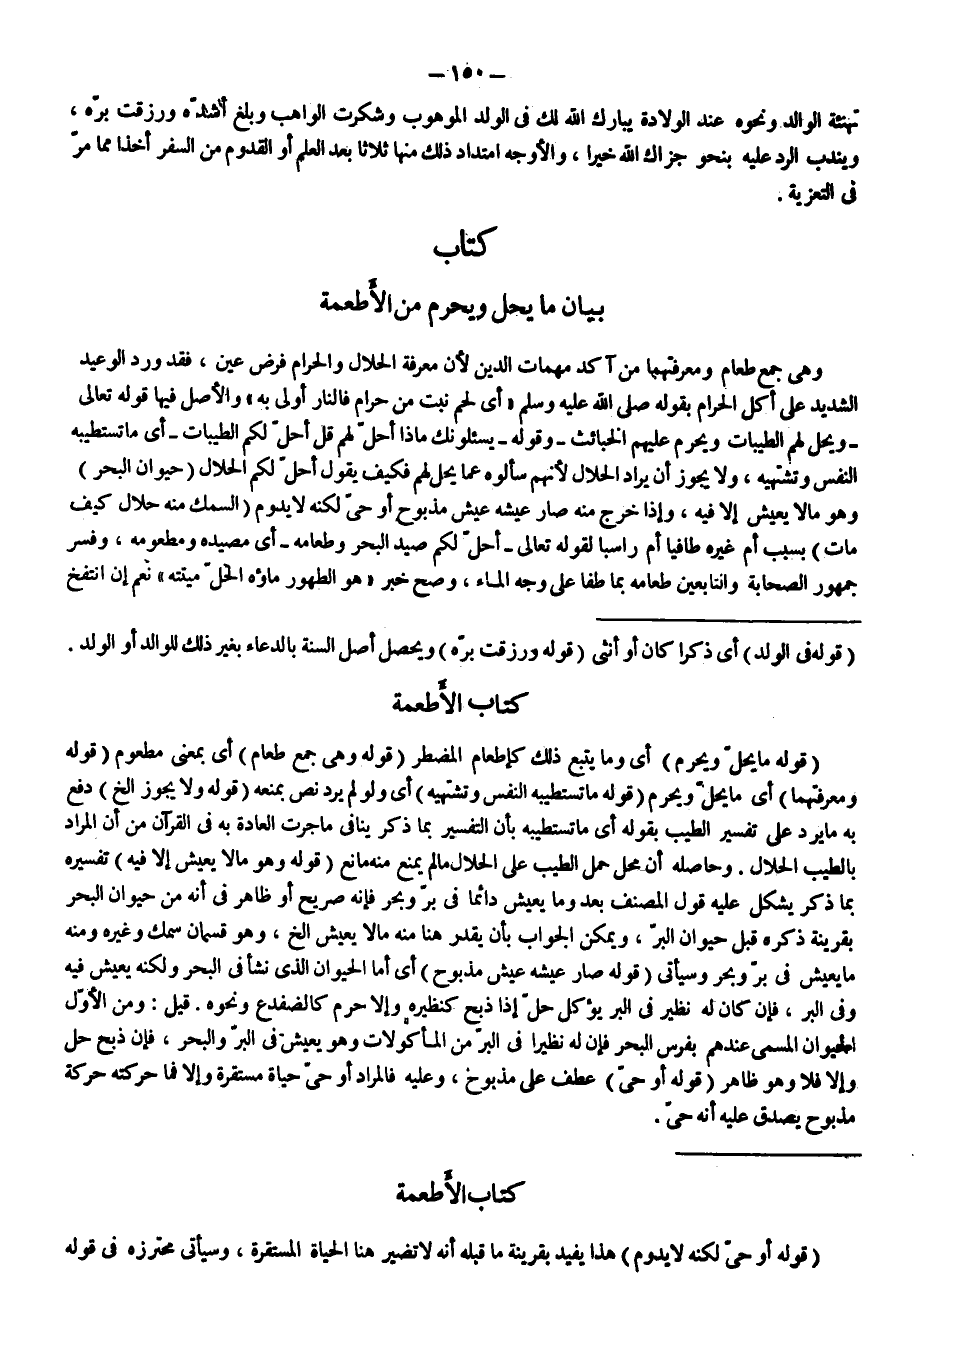 — ١٥٠ —
تهنئة الوالد ونحوه عند الولادة يبارك الله لك فى الولد الموهوب وشكرت الواهب وبلغ أشدّه ورزقت برّه ،
ويندب الرد عليه بنحو جزاك الله خيرا ، والأوجه امتداد ذلك منها ثلاثا بعد العلم أو القدوم من السفر أخذا مما مرّ
فى التعزية .
كتاب
بيان ما يحل ويحرم من الأطعمة
وهى جمع طعام ومعرفتهما من آكد مهمات الدين لأن معرفة الحلال والحرام فرض عين ، فقد ورد الوعيد
الشديد على أكل الحرام بقوله صلى الله عليه وسلم « أى لحم نبت من حرام فالنار أولى به » والأصل فيها قوله تعالى
ـ ويحل لهم الطيبات ويحرم عليهم الخبائث ـ وقوله ـ يسئلونك ماذا أحلّ لهم قل أحلّ لكم الطيبات ـ أى ماتستطيبه
النفس وتشتهيه ، ولا يجوز أن يراد الحلال لأنهم سألوه عما يحل لهم فكيف يقول أحلّ لكم الحلال ( حيوان البحر )
وهو مالا يعيش إلا فيه ، وإذا خرج منه صار عيشه عيش مذبوح أو حىّ لكنه لايدوم ( السمك منه حلال كيف
مات ) بسبب أم غيره طافيا أم راسبا لقوله تعالى ـ أحلّ لكم صيد البحر وطعامه ـ أى مصيده ومطعومه ، وفسر
جمهور الصحابة والتابعين طعامه بما طفا على وجه المـاء ، وصح خبر « هو الطهور ماؤه الحلّ ميتته » نعم إن انتفخ
( قوله فى الولد ) أى ذكرا كان أو أنثى ( قوله ورزقت برّه ) ويحصل أصل السنة بالدعاء بغير ذلك للوالد أو الولد .
كتاب الأطعمة
( قوله مايحلّ ويحرم ) أى وما يتبع ذلك كإطعام المضطر ( قوله وهى جمع طعام ) أى بمعنى مطعوم ( قوله
ومعرفتهما ) أى مايحلّ ويحرم ( قوله ماتستطيبه النفس وتشتهيه ) أى ولو لم يرد نص بمنعه ( قوله ولا يجوز الخ ) دفع
به مايرد على تفسير الطيب بقوله أى ماتستطيبه بأن التفسير بما ذكر ينافى ماجرت العادة به فى القرآن من أن المراد
بالطيب الحلال . وحاصله أن محل حمل الطيب على الحلال مالم يمنع منه مانع ( قوله وهو مالا يعيش إلا فيه ) تفسيره
بما ذكر يشكل عليه قول المصنف بعد وما يعيش دائما فى برّ وبحر فإنه صريح أو ظاهر فى أنه من حيوان البحر
بقرينة ذكره قبل حيوان البرّ ، ويمكن الجواب بأن يقدر هنا منه مالا يعيش الخ ، وهو قسمان سمك وغيره ومنه
مايعيش فى برّ وبحر وسيأتى ( قوله صار عيشه عيش مذبوح ) أى أما الحيوان الذى نشأ فى البحر ولكنه يعيش فيه
وفى البر ، فإن كان له نظير فى البر يؤكل حلّ إذا ذبح كنظيره وإلا حرم كالضفدع ونحوه . قيل : ومن الأوّل
الحيوان المسمى عندهم بفرس البحر فإن له نظيرا فى البرّ من المـأكولات وهو يعيش فى البرّ والبحر ، فإن ذبح حل
وإلا فلا وهو ظاهر ( قوله أو حىّ ) عطف على مذبوح ، وعليه فالمراد أو حىّ حياة مستقرة وإلا فما حركته حركة
مذبوح يصدق عليه أنه حىّ .
كتاب الأطعمة
( قوله أو حىّ لكنه لايدوم ) هذا يفيد بقرينة ما قبله أنه لاتضير هنا الحياة المستقرة ، وسيأتى محترزه فى قوله